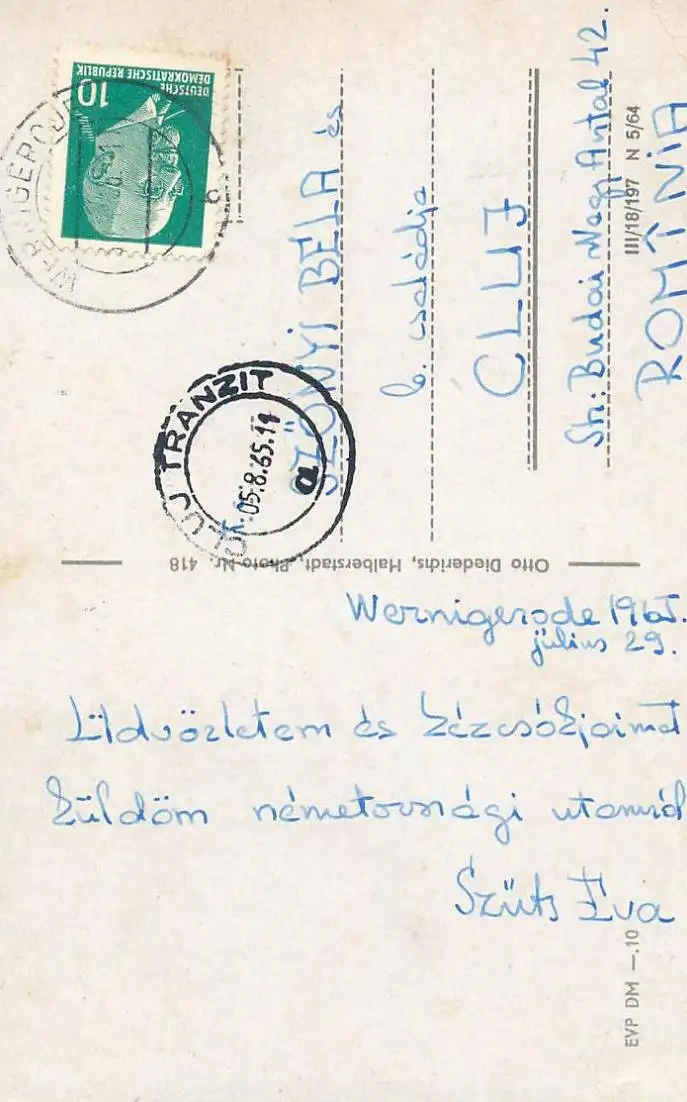 Wernigerode 1965.
július 29.
Üdvözletem és kézcsókjaimat
küldöm németországi utamról
Szüts Éva
SZŐNYI BÉLA és
b. családja
CLUJ
Str: Budai Nagy Antal 42.
ROMÎNIA
DEUTSCHE
DEMOKRATISCHE REPUBLIK
10
WERNIGERODE
CLUJ TRANZIT
05.8.65.11
a
Otto Diederichs, Halberstadt, Photo Nr. 418
III/18/197 N 5/64
EVP DM —.10